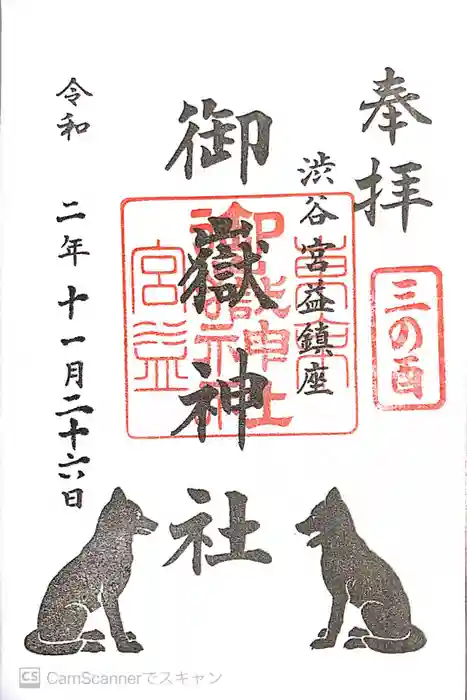 奉拝
三の酉
渋谷宮益鎮座
御嶽神社
宮益
令和二年十一月二十六日
CS CamScannerでスキャン